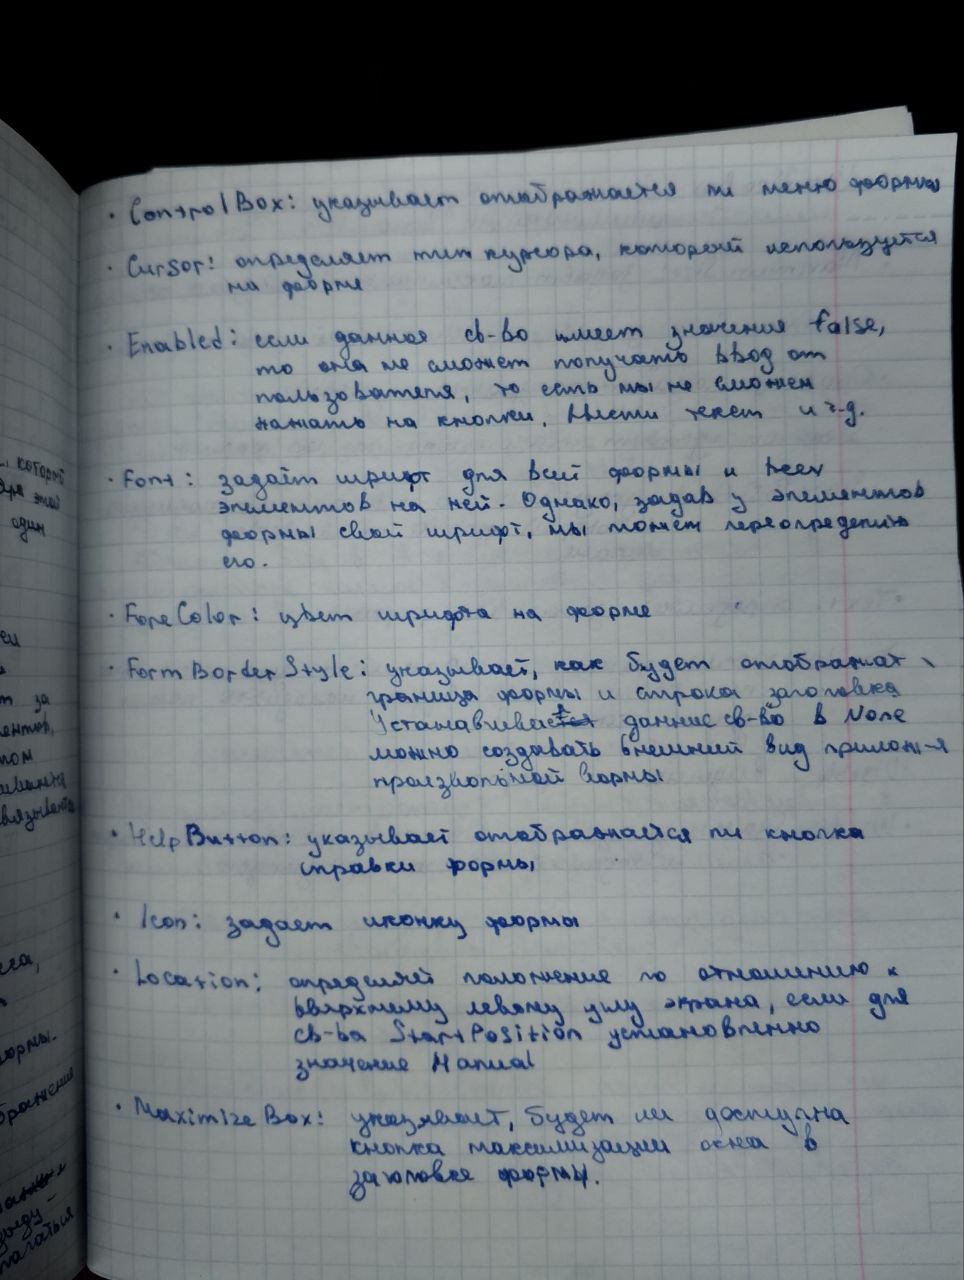 · ControlBox: указывает отображается ли меню формы
· Cursor: определяет тип курсора, который используется
на форме
· Enabled: если данное св-во имеет значения false,
то она не сможет получать ввод от
пользователя, то есть мы не сможем
нажать на кнопки, ввести текст и т.д.
· Font: задаёт шрифт для всей формы и всех
элементов на ней. Однако, задав у элементов
формы свой шрифт, мы можем переопределить
его.
· ForeColor: цвет шрифта на форме
· FormBorderStyle: указывает, как будет отображат
граница формы и строка заголовка
Устанавливая данное св-во в None
можно создавать внешний вид прилож-я
произвольной формы
· HelpButton: указывает отображается ли кнопка
справки формы
· Icon: задает иконку формы
· Location: определяет положение по отношению к
вверхнему левому углу экрана, если для
св-ва StartPosition установленно
значение Manual
· MaximizeBox: указывает, будет ли доступна
кнопка максимизации окна в
заголовке формы.
который
этой
один
за
том
связывается